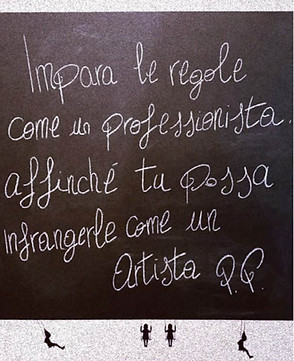 Impara le regole
come un professionista.
affinché tu possa
infrangerle come un
Artista P.P.